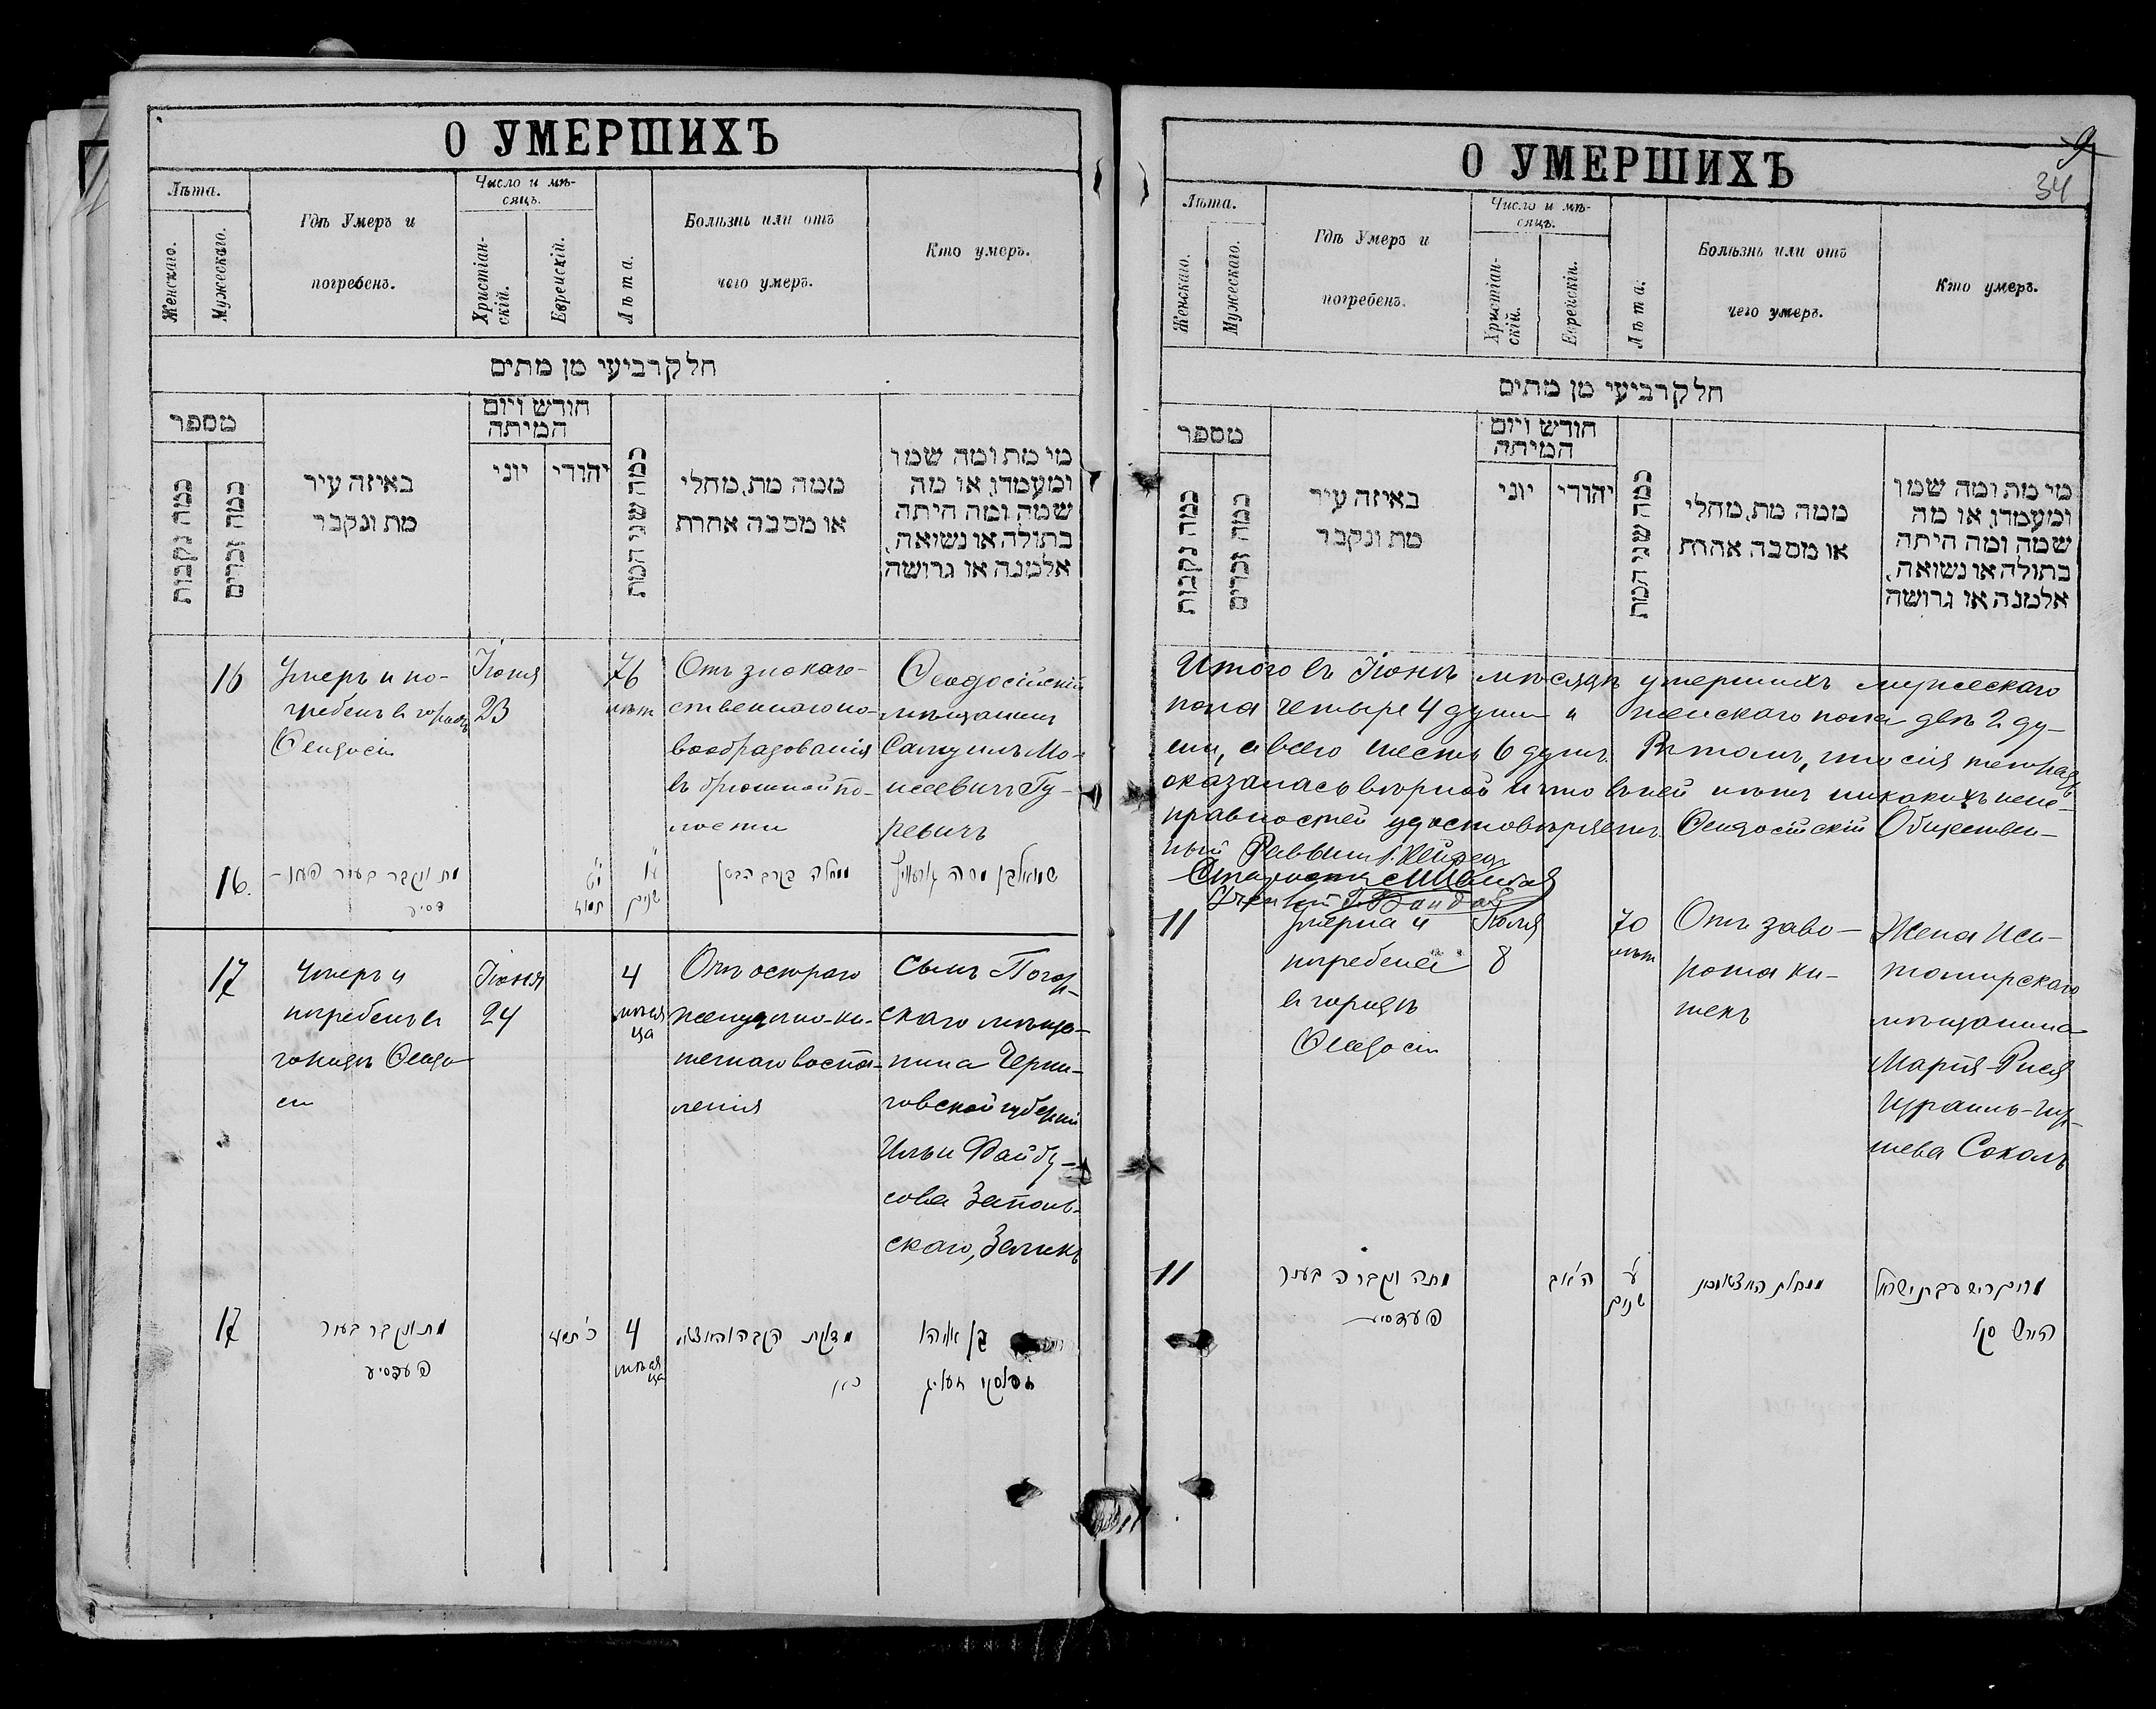 О УМЕРШИХЪ
Лѣта.
Женскаго.
Мужескаго.
Гдѣ Умеръ и
погребенъ.
Число и мѣ-
сяцъ.
Христіан-
скій.
Еврейскій.
Лѣта.
Болѣзнь или отъ
чего умеръ.
Кто умеръ.
חלק רביעי מן מתים
מספר
כמה נקבות
כמה זכרים
באיזה עיר
מת ונקבר
חודש ויום
המיתה
יוני
יהודי
כמה שני המת
ממה מת, מחלי
או מסבה אחרת
מי מת ומה שמו
ומעמדו, או מה
שמה ומה היתה
בתולה או נשואה,
אלמנה או גרושה
16
Умеръ и по-
гребенъ въ городѣ
Ѳеодосіи
Іюня
23
76
лѣтъ
Отъ злокаче-
ственнаго но-
вообразованія
въ брюшной по-
лости
Ѳеодосійскій
мѣщанинъ
Самуилъ Мо-
исеевичъ Гу-
ревичъ
16.
מת ונקבר בעיר פעא-
דסיע
י"ט
תמוז
ע"ו
שנים
מחלה בקרב הבטן
שמואל בן משה גורעוויץ
17
Умеръ и
погребенъ въ
городѣ Ѳеодо
сіи
Іюня
24
4
мѣсяца
Отъ остраго
желудочно-ки-
шечнаго воспа-
ленія
Сынъ Погар-
скаго мѣща-
нина Черни-
говской губерніи
Ильи Файбу-
сова Запол-
скаго, Зеликъ
17
מת ונקבר בעיר
פעדסיע
כ' תמוז
4
мѣсяца
מדלקת הקבה והמעי
בן אליהו
О УМЕРШИХЪ
9
34
Лѣта.
Женскаго.
Мужескаго.
Гдѣ Умеръ и
погребенъ.
Число и мѣ-
сяцъ.
Христіан-
скій.
Еврейскій.
Лѣта.
Болѣзнь или отъ
чего умеръ.
Кто умеръ.
חלק רביעי מן מתים
מספר
כמה נקבות
כמה זכרים
באיזה עיר
מת ונקבר
חודש ויום
המיתה
יוני
יהודי
כמה שני המת
ממה מת, מחלי
או מסבה אחרת
מי מת ומה שמו
ומעמדו, או מה
שמה ומה היתה
בתולה או נשואה,
אלמנה או גרושה
Итого въ Іюнѣ мѣсяцѣ умершихъ мужескаго
пола четыре 4 души и женскаго пола двѣ 2 ду-
ши, а всего шесть 6 душъ. Въ томъ, что сія тетрадь
оказалась вѣрной и что въ ней нѣтъ никакихъ неис-
правностей удостовѣряетъ Ѳеодосійскій Обществен-
ный Раввинъ
Староста
11
Умерла и
погребена
въ городѣ
Ѳеодосіи
Іюля
8
70
лѣтъ
Отъ заво-
рота ки-
шекъ
Жена Жи-
томирскаго
мѣщанина
Марія-Рися
Израиль-Гер-
шева Соколъ
11
מתה ונקברה בעיר
פעדסיע
ה' אב
ע'
שנים
ממחלת המעים
מרים ריסע בת ישראל
הירש סקל